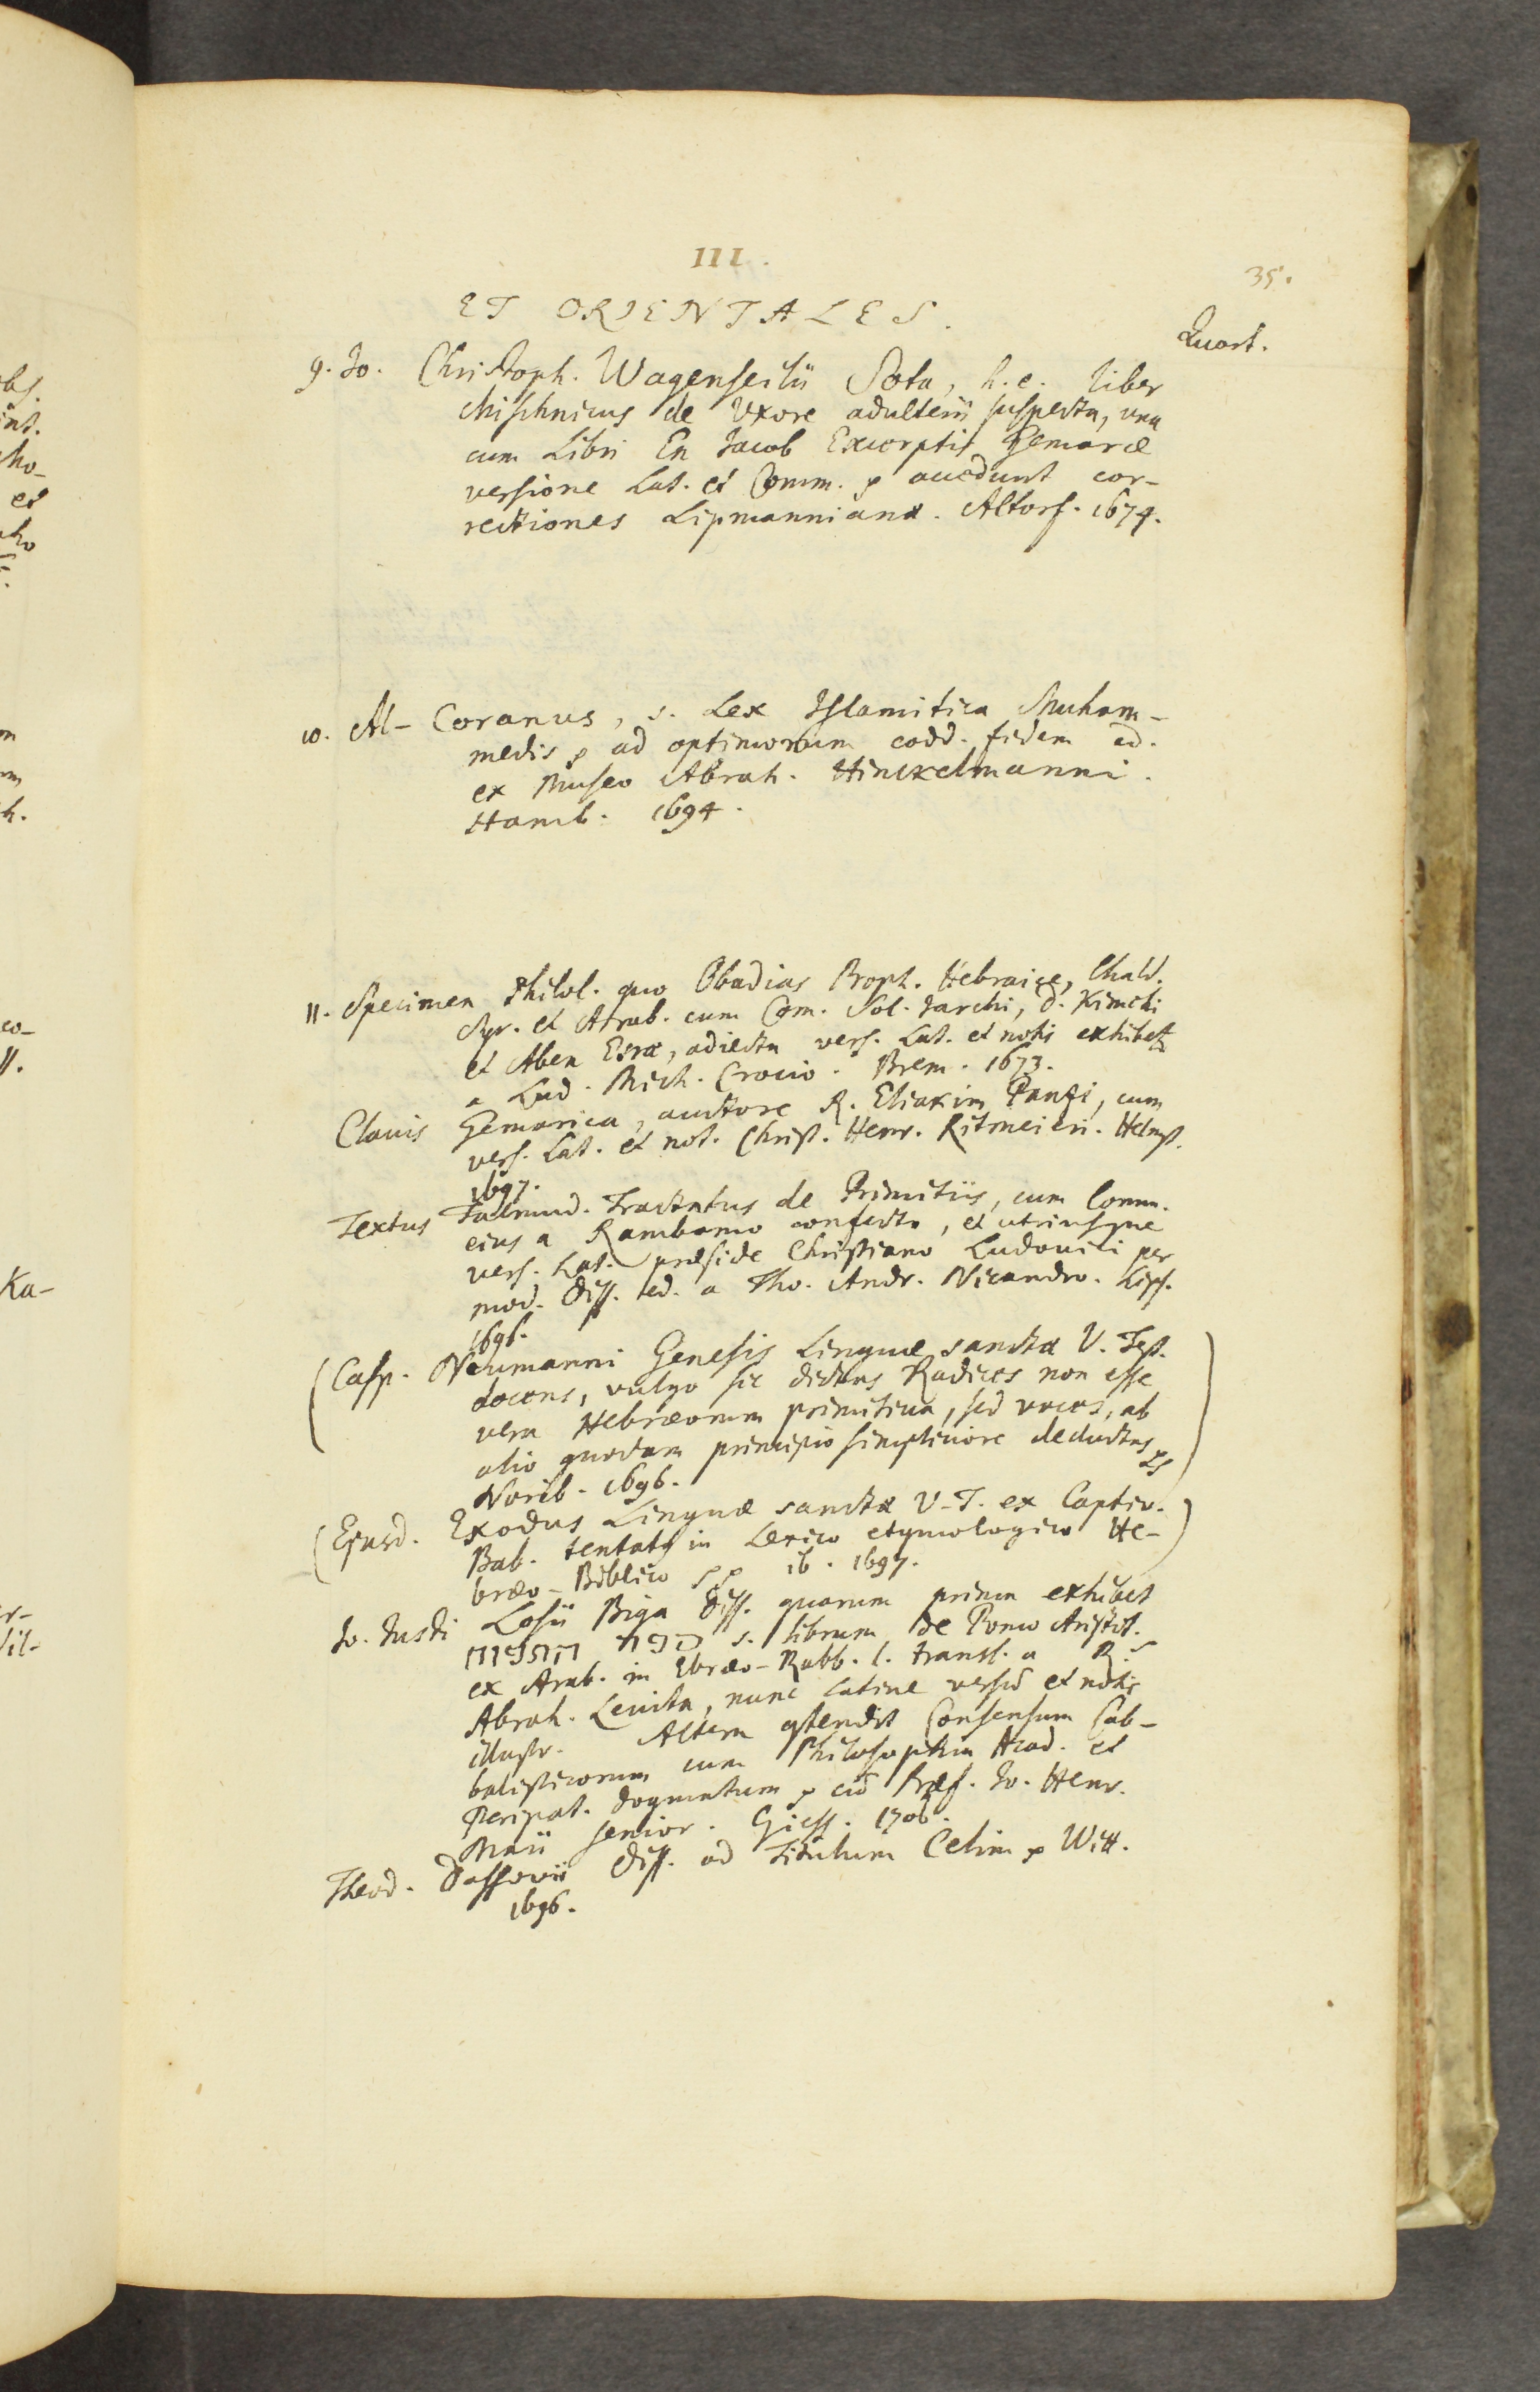 III.
35.
ET ORIENTALES.
Quart.
9. Jo. Christoph. Wagenseilii Sota, h. e. Liber
Mischnicus de Uxore adulterii suspecta, una
cum Libri En Jacob Excerptis Gemaræ
versione Lat. et Comm. p accedunt cor-
rectiones Lipmannianæ. Altorf. 1674.
10. Al-Coranus, s. Lex Islamitica Muham-
medis p ad optimorum codd. fidem ed.
ex Museo Abrah. Hinckelmanni.
Hamb. 1694.
11. Specimen Philol. quo Obadias Proph. Hebraice, Chald.
Syr. et Arab. cum Com. Sal. Jarchi, D. Kimchi
et Aben Esræ, adiecta vers. Lat. et notis exhibet
a Lud. Mich. Crocio. Brem. 1673.
Clavis Gemarica, auctore R. Eliakim Panzi, cum
vers. Lat. et not. Christ. Henr. Ritmeieri. Helmst.
1697.
Textus Talmud. Tractatus de Primitiis, cum Comm.
eius a Rambamo confecto, et utriusque
vers. Lat. præside Christiano Ludovici per
mod. Diss. ed. a Tho. Andr. Nicandro. Lips.
1696.
(Casp. Neumanni Genesis Linguæ sanctæ V. Test.
docens, vulgo sic dictas Radices non esse
vera Hebræorum primitiva, sed voces, ab
alio quodam principio simpliciore deductas
Norib. 1696.)
(Ejusd. Exodus Linguæ sanctæ V. T. ex Captiv.
Bab. tentatq in Lexico etymologico He-
bræo-Biblico pp ib. 1697.)
Jo. Justi Losii Biga Diss. quarum prima exhibet
ספר התפוח s. librum de Pomo Aristot.
ex Arab. in Ebræo-Rabb. l. transl. a R.
Abrah. Levita, nunc Latine versū et notis
illustr. Altera ostendit Consensum Cab-
balisticorum cum Philosophia Acad. et
Peripat. dogmatum p cū Præf. Jo. Henr.
Maii senior. Giess. 1706.
Theod. Dassovii Diss. ad Titulum Celim p Witt.
1696.